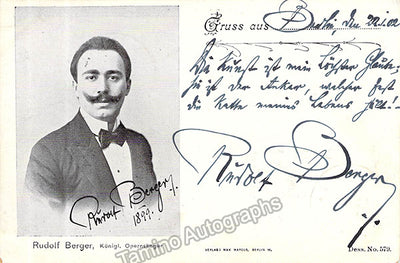 Gruss aus Berlin, den 22.1.02
Die Kunst ist mein höchster Glaube,
Sie ist der Anker, welcher fest
die Kette meines Lebens hält!
Rudolf Berger
Rudolf Berger
1899.
Rudolf Berger, Königl. Opernsänger
VERLAG MAX MARCUS, BERLIN W.
Dess. No. 579.
Tamino Autographs